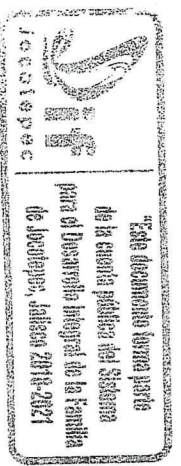 DIF
Jocotepec
"Este documento forma parte
de la cuenta pública del Sistema
para el Desarrollo Integral de la Familia
de Jocotepec, Jalisco. 2018-2021